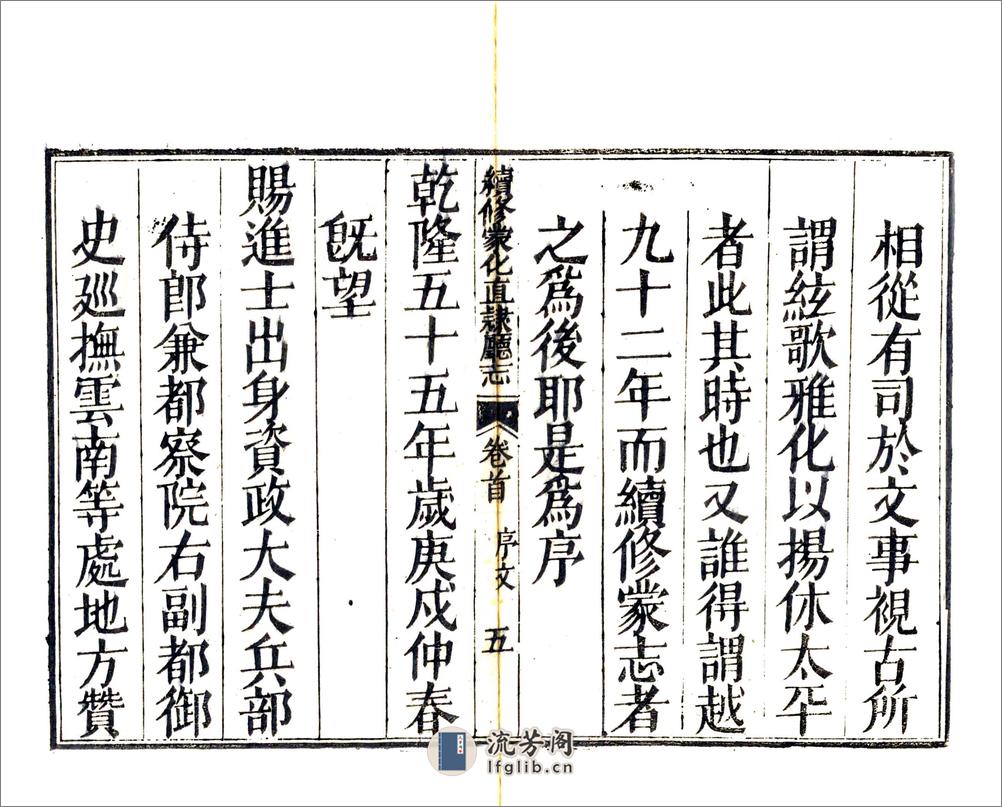 相從有司於文事視古所
謂絃歌雅化以揚休太平
者此其時也又誰得謂越
九十二年而續修蒙志者
之爲後耶是爲序
續修蒙化直隸廳志
卷首
序文
五
乾隆五十五年歲庚戌仲春
旣望
賜進士出身資政大夫兵部
侍郎兼都察院右副都御
史廵撫雲南等處地方贊
流芳阁
lfglib.cn